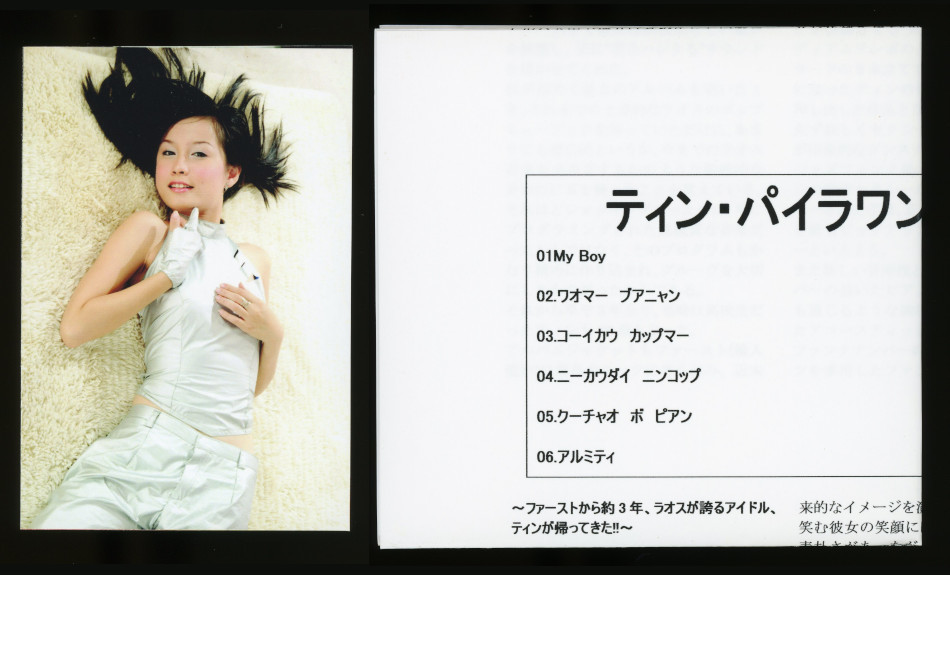 ティン・パイラワン
01My Boy
02.ワオマー　ブアニャン
03.コーイカウ　カップマー
04.ニーカウダイ　ニンコップ
05.クーチャオ　ボ　ピアン
06.アルミティ
～ファーストから約３年、ラオスが誇るアイドル、
ティンが帰ってきた!!～
来的なイメージを
笑む彼女の笑顔に